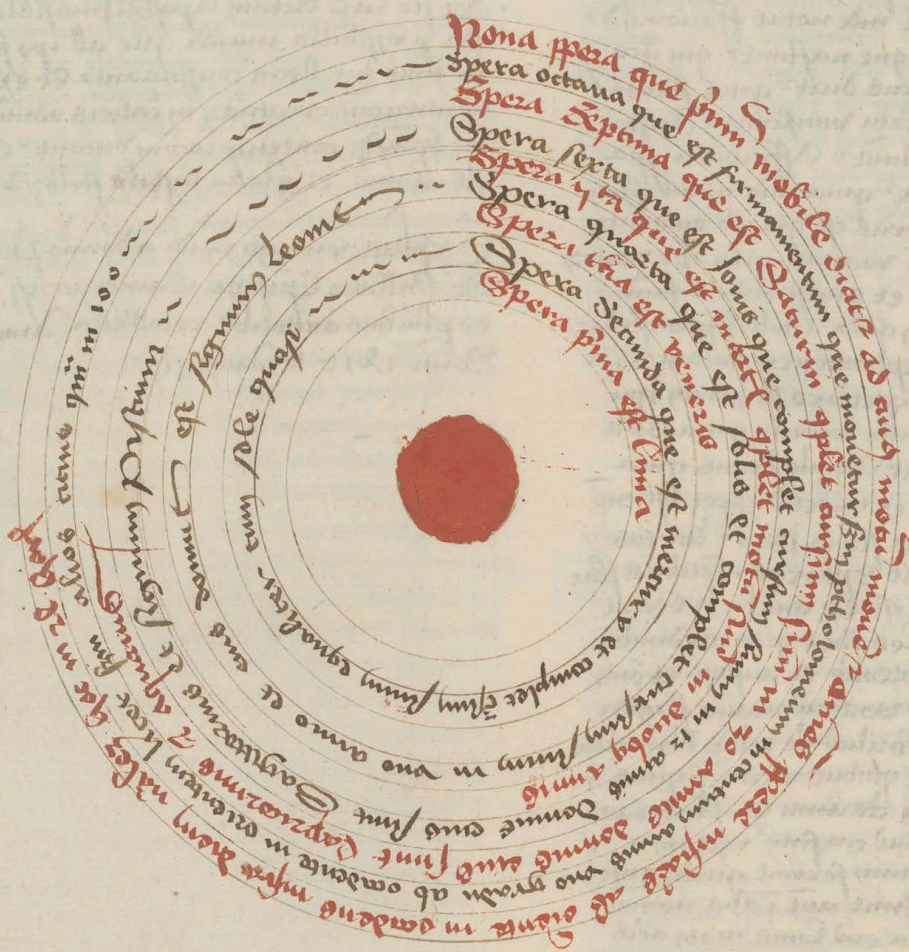 Nona spera que primum mobile dicitr ad cuius motum moventr omnes spere inferiores ab oriente in occidens infra diem naturalem hoc in 24 horis
Spera octava que est firmamentum que movetur secundum ptholomeum in centum annis uno gradu ab occidente in orientem licet secundum alios
Spera Septima que est Saturni complet cursum suum in 30 annis domus eius sunt Capricornus et aquarius
Spera sexta que est Iovis que complet cursum suum in 12 annis domus eius sunt Sagittarius et signum piscium
Spera quinta que est martis complet motum suum in duobus annis
Spera quarta que est solis et complet cursum suum in uno anno et eius domus est signum leonis
Spera tercia est veneris
Spera Secunda que est mercurii et complet cursum suum equaliter cum sole quasi
Spera prima est luna